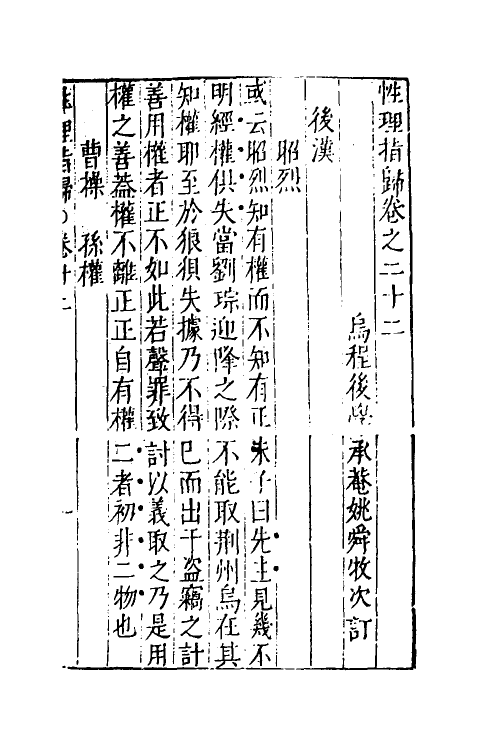 性理指歸卷之二十二
烏程後學承菴姚舜牧次訂
後漢
昭烈
或云昭烈知有權而不知有正朱子曰先主見幾不
明經權俱失當劉琮迎降之際不能取荆州烏在其
知權耶至於狼狽失據乃不得已而出于盜竊之計
善用權者正不如此若聲罪致討以義取之乃是用
權之善葢權不離正正自有權二者初非二物也
曹操　孫權
性理指歸　卷廿二　一